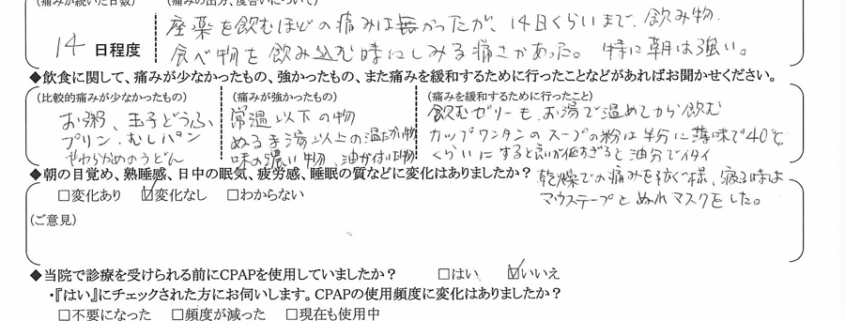 (痛みが続いた日数) (痛みの出方、度合いについて)
14日程度 座薬を飲むほどの痛みは無かったが、14日くらいまで、飲み物
食べ物を飲み込む時にしみる痛さがあった。特に朝は強い。
◆飲食に関して、痛みが少なかったもの、強かったもの、また痛みを緩和するために行ったことなどがあればお聞かせください。
(比較的痛みが少なかったもの) (痛みが強かったもの) (痛みを緩和するために行ったこと)
お粥、玉子どうふ 常温以下の物 飲むゼリーも、お湯で温めてから飲む
プリン、むしパン ぬるま湯以上の温たか物 カップワンタンのスープの粉は半分に薄味で40℃
やわらかめのうどん 味の濃い物、油か付け物 くらいにすると良いが低すぎると油分でイタイ
◆朝の目覚め、熟睡感、日中の眠気、疲労感、睡眠の質などに変化はありましたか? 乾燥での痛みを防ぐ様、寝る時は
□変化あり ☑変化なし □わからない マウステープとぬれマスクをした。
(ご意見)
◆当院で診療を受けられる前にCPAPを使用していましたか? □はい ☑いいえ
・『はい』にチェックされた方にお伺いします。CPAPの使用頻度に変化はありましたか?
□不要になった □頻度が減った □現在も使用中